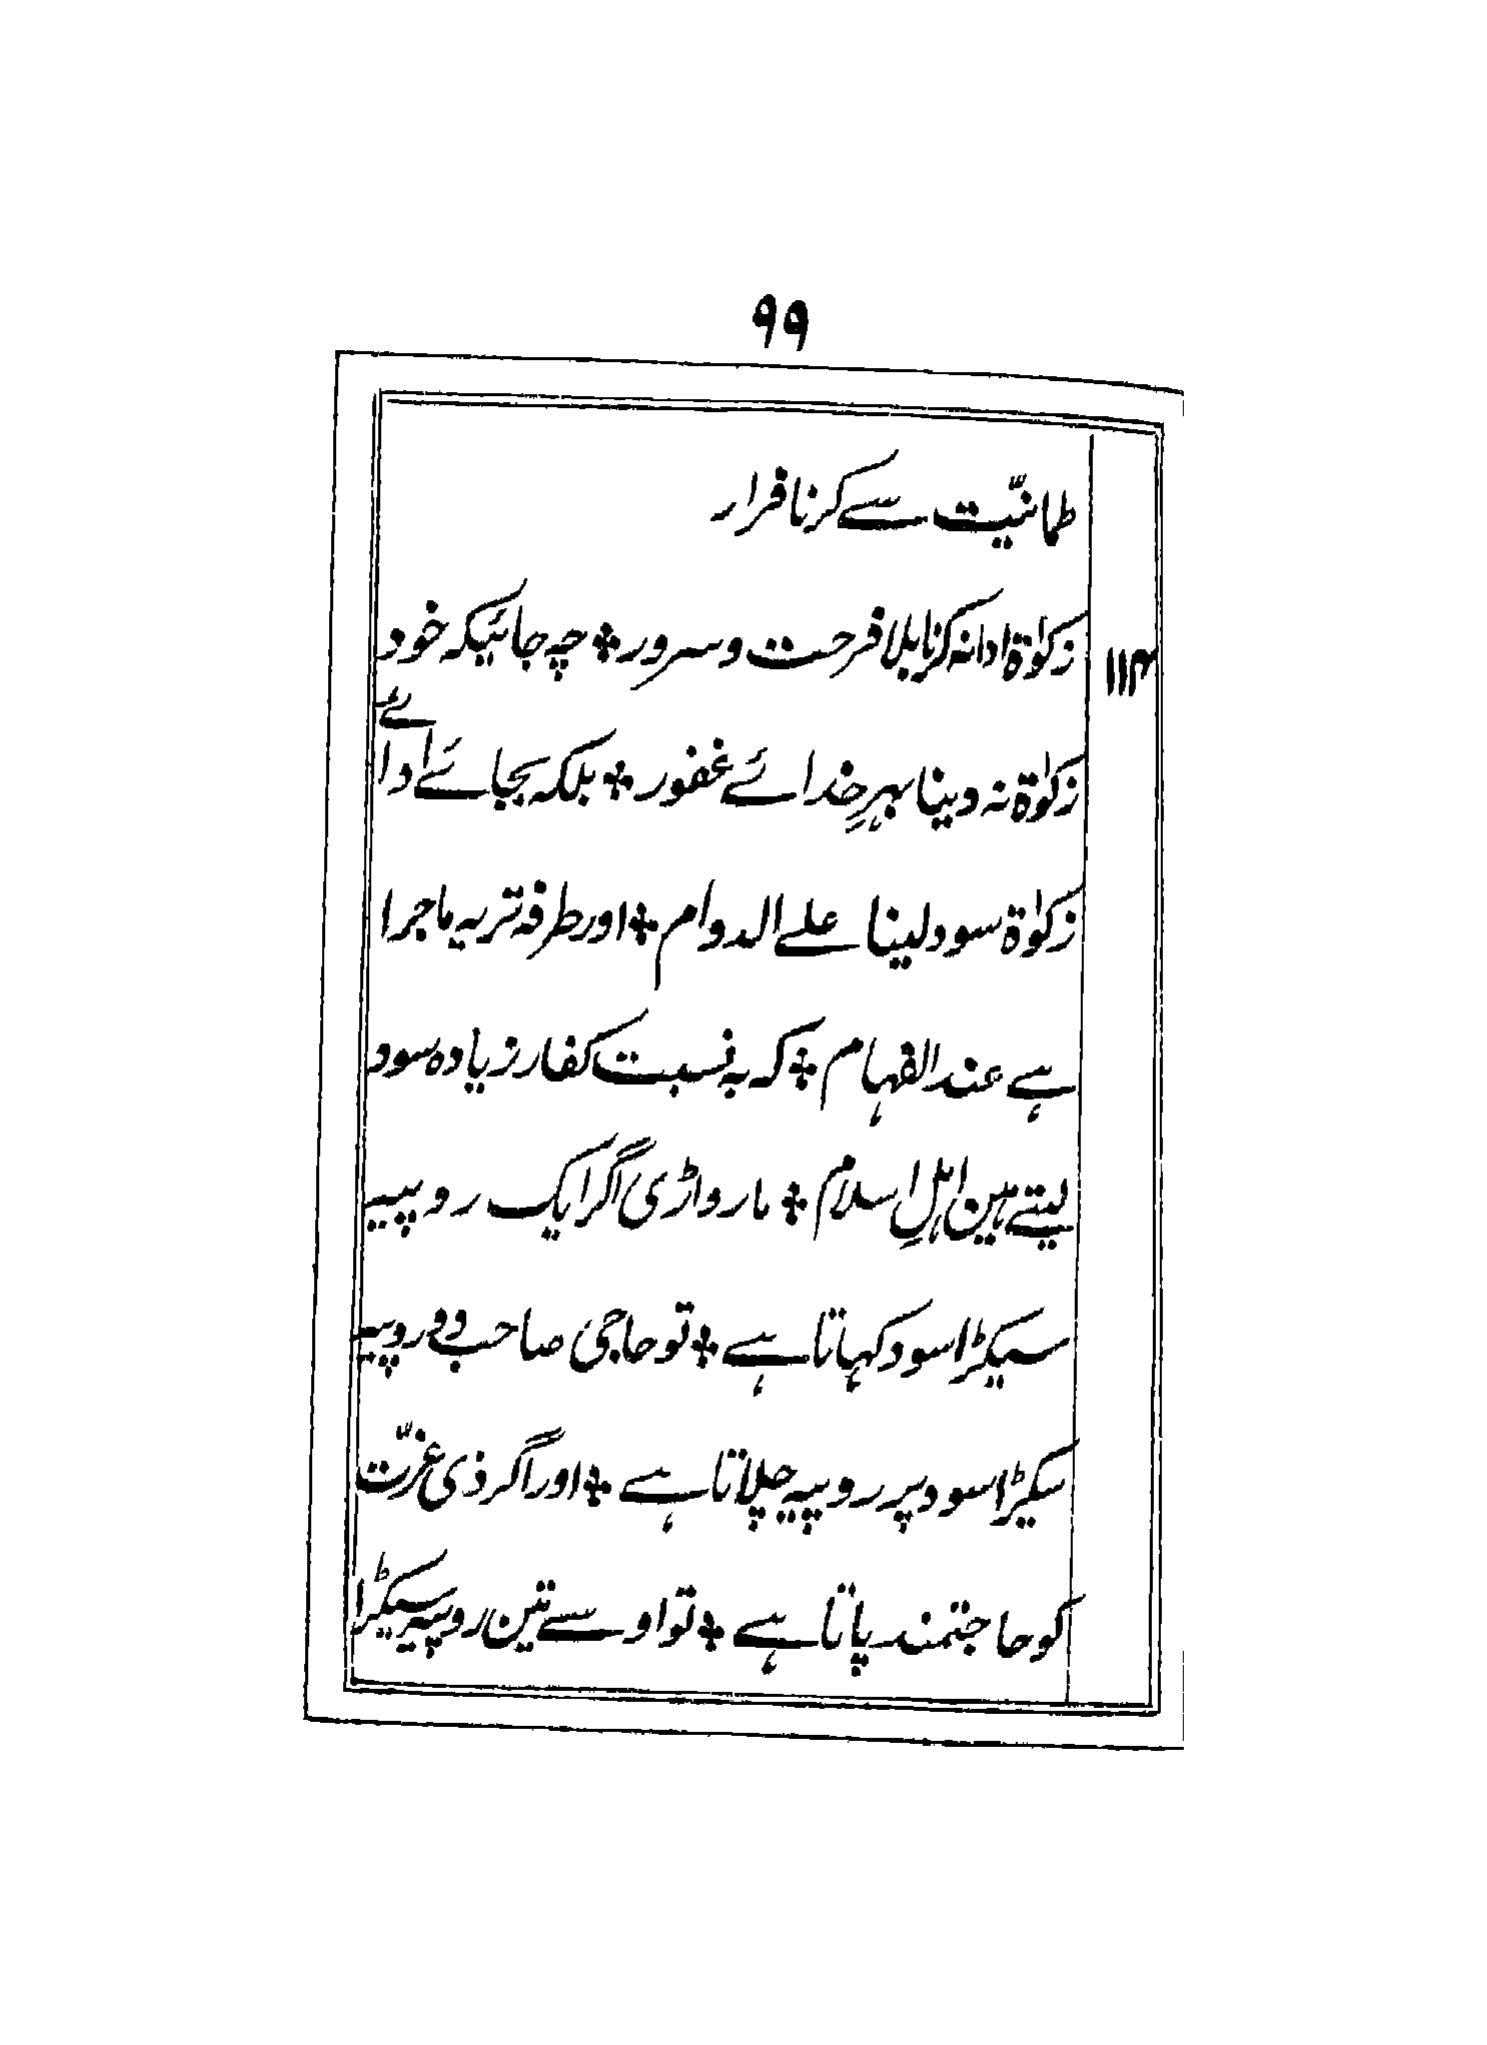 ۹۹
طمانیّت سے کرنا فرار
۱۱۴
زکوٰة ادا نہ کرنا بلا فرحت و سرور ٭ چہ جائیکہ خود
زکوٰة نہ دینا بہرِ خدائے غفور ٭ بلکہ بجائے ادائے
زکوٰة سود لینا علے الدوام ٭ اور طرفہ تر یہ ماجرا
ہے عند الفہام ٭ کہ بہ نسبت کفار زیادہ سود
لیتے ہین اہلِ اسلام ٭ مارواڑی اگر ایک روپیہ
سیکڑا سود کہاتا ہے ٭ تو حاجی صاحب دو روپیہ
سیکڑا سود پر روپیہ چلاتا ہے ٭ اور اگر ذی عزّت
کو حاجتمند پاتا ہے ٭ تو اوسے تین روپیہ سیکڑا